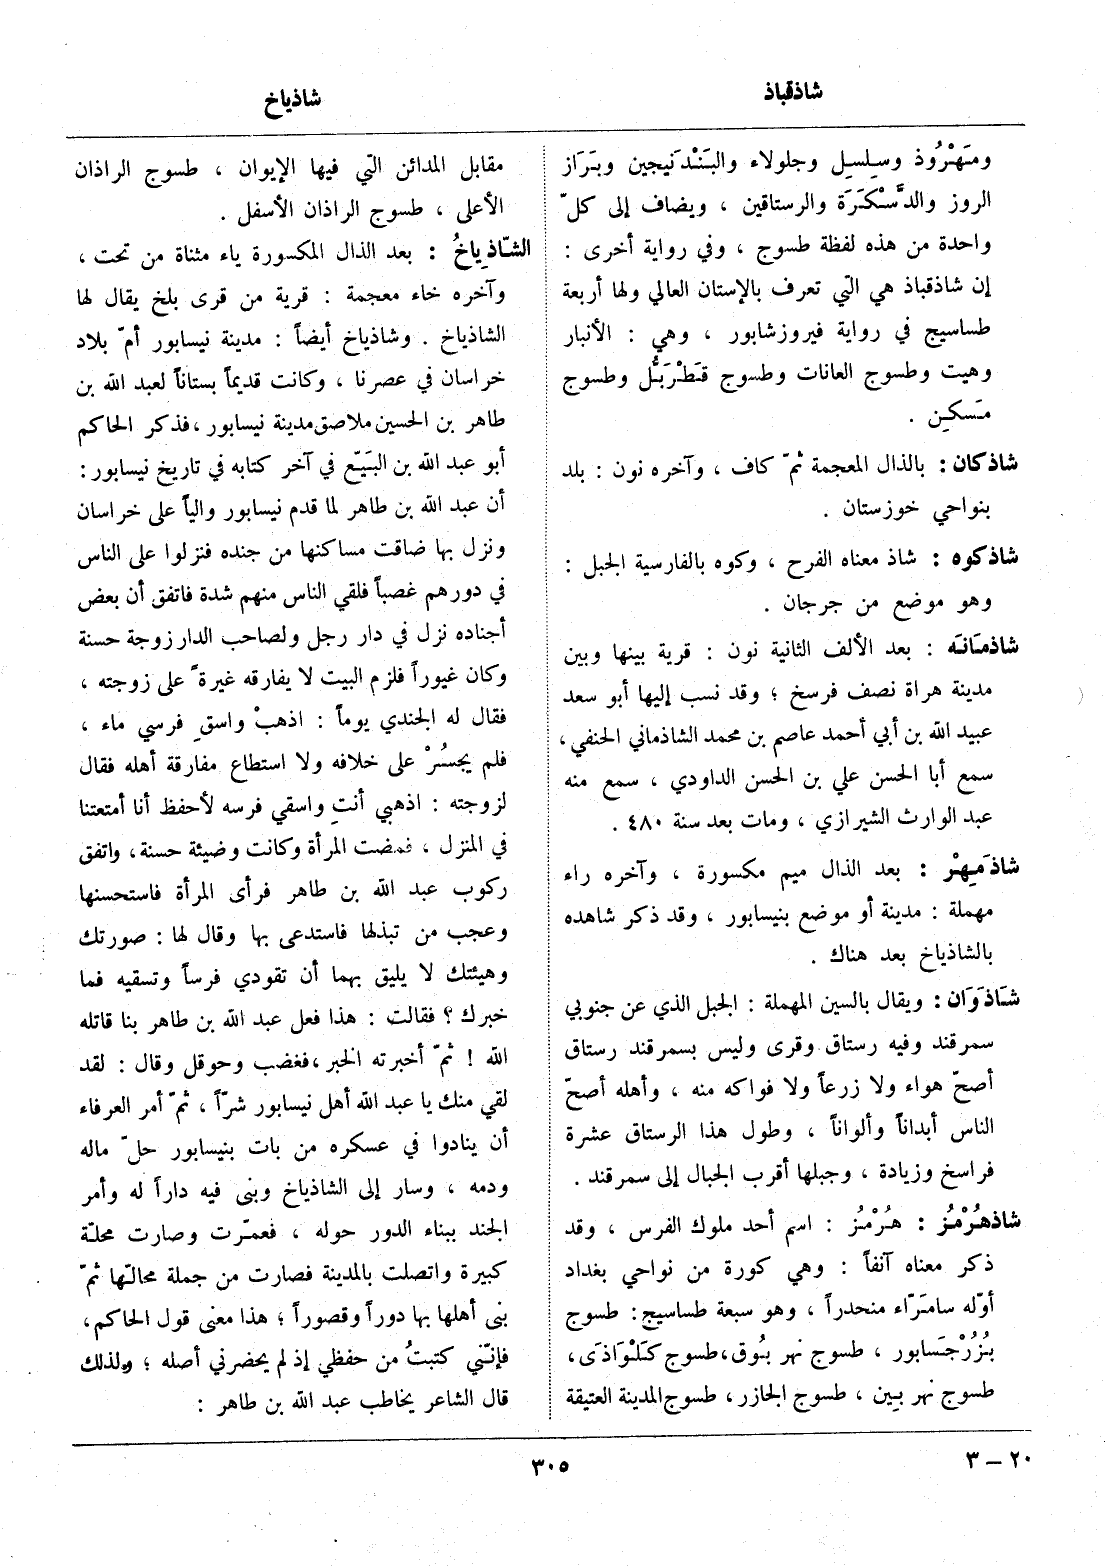 شاذقباذ
شاذياخ
ومَهْرُوذ وسِلسِل وجلولاء والبَنْدَنيجين وبَرَاز
الروز والدَّسْكَرَة والرستاقين ، ويضاف إلى كلّ
واحدة من هذه لفظة طسوج ، وفي رواية أخرى :
إن شاذقباذ هي التي تعرف بالإستان العالي ولها أربعة
طساسيج في رواية فيروزشابور ، وهي : الأنبار
وهيت وطسوج العانات وطسوج قَطْرَبُّل وطسوج
مَسكِن .
شاذكان : بالذال المعجمة ثمّ كاف ، وآخره نون : بلد
بنواحي خوزستان .
شاذكوه : شاذ معناه الفرح ، وكوه بالفارسية الجبل :
وهو موضع من جرجان .
شاذمَانَه : بعد الألف الثانية نون : قرية بينها وبين
مدينة هراة نصف فرسخ ؛ وقد نسب إليها أبو سعد
عبيد الله بن أبي أحمد عاصم بن محمد الشاذماني الحنفي ،
سمع أبا الحسن علي بن الحسن الداودي ، سمع منه
عبد الوارث الشيرازي ، ومات بعد سنة ٤٨٠ .
شاذَمِهْر : بعد الذال ميم مكسورة ، وآخره راء
مهملة : مدينة أو موضع بنيسابور ، وقد ذكر شاهده
بالشاذياخ بعد هناك .
شَاذَوَان : ويقال بالسين المهملة : الجبل الذي عن جنوبي
سمرقند وفيه رستاق وقرى وليس بسمرقند رستاق
أصحّ هواء ولا زرعاً ولا فواكه منه ، وأهله أصحّ
الناس أبداناً وألواناً ، وطول هذا الرستاق عشرة
فراسخ وزيادة ، وجبلها أقرب الجبال إلى سمرقند .
شاذهُرْمُز : هُرْمُز : اسم أحد ملوك الفرس ، وقد
ذكر معناه آنفاً : وهي كورة من نواحي بغداد
أوّله سامَرّاء منحدراً ، وهو سبعة طساسيج : طسوج
بُزُرْجَسابور ، طسوج نهر بُوق ، طسوج كَلْوَاذَى ،
طسوج نهر بِين ، طسوج الجازر ، طسوج المدينة العتيقة
مقابل المدائن التي فيها الإيوان ، طسوج الراذان
الأعلى ، طسوج الراذان الأسفل .
الشّاذِياخُ : بعد الذال المكسورة ياء مثناة من تحت ،
وآخره خاء معجمة : قرية من قرى بلخ يقال لها
الشاذياخ . وشاذياخ أيضاً : مدينة نيسابور أمّ بلاد
خراسان في عصرنا ، وكانت قديماً بستاناً لعبد الله بن
طاهر بن الحسين ملاصق مدينة نيسابور ، فذكر الحاكم
أبو عبد الله بن البَيّع في آخر كتابه في تاريخ نيسابور :
أن عبد الله بن طاهر لما قدم نيسابور والياً على خراسان
ونزل بها ضاقت مساكنها من جنده فنزلوا على الناس
في دورهم غصباً فلقي الناس منهم شدة فاتفق أن بعض
أجناده نزل في دار رجل ولصاحب الدار زوجة حسنة
وكان غيوراً فلزم البيت لا يفارقه غيرةً على زوجته ،
فقال له الجندي يوماً : اذهبْ واسقِ فرسي ماء ،
فلم يجسُرْ على خلافه ولا استطاع مفارقة أهله فقال
لزوجته : اذهبي أنتِ واسقي فرسه لأحفظ أنا أمتعتنا
في المنزل ، فمضت المرأة وكانت وضيئة حسنة ، واتفق
ركوب عبد الله بن طاهر فرأى المرأة فاستحسنها
وعجب من تبذلها فاستدعى بها وقال لها : صورتك
وهيئتك لا يليق بهما أن تقودي فرساً وتسقيه فما
خبرك ؟ فقالت : هذا فعل عبد الله بن طاهر بنا قاتله
الله ! ثمّ أخبرته الخبر ، فغضب وحوقل وقال : لقد
لقي منك يا عبد الله أهل نيسابور شرّاً ، ثمّ أمر العرفاء
أن ينادوا في عسكره من بات بنيسابور حلّ ماله
ودمه ، وسار إلى الشاذياخ وبنى فيه داراً له وأمر
الجند ببناء الدور حوله ، فعمّرت وصارت محلّة
كبيرة واتصلت بالمدينة فصارت من جملة محالّها ثمّ
بنى أهلها بها دوراً وقصوراً ؛ هذا معنى قول الحاكم ،
فإنّني كتبتُ من حفظي إذ لم يحضرني أصله ؛ ولذلك
قال الشاعر يخاطب عبد الله بن طاهر :
٢٠ – ٣
٣٠٥